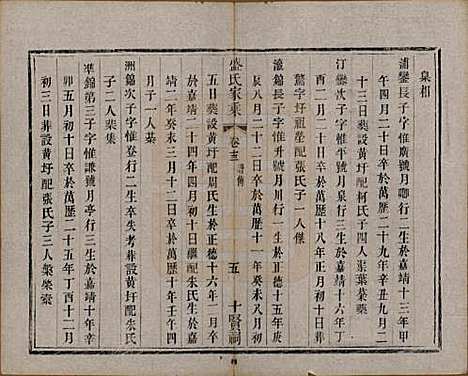 臬相
浦鑾長子字惟廣號月卿行二生於嘉靖十三年甲
午四月二十日卒於萬歷二十九年辛丑九月二
十三日葬設黃圩配柯氏子四人渠葉棠藥
汀鑾次子字惟平號月泉行三生於嘉靖十六年丁
酉二月二十日卒於萬歷十八年正月初十日葬
鷔字圩祖塋配張氏子一人傑
濠錦長子字惟升號月川行一生於正德十五年庚
辰八月二十二日卒於萬歷十一年癸未八月初
盛氏家乘
卷十三
譜傳
五
十賢祠
五日葬設黃圩配周氏生於正德十六年 月卒
於嘉靖二十四年四月初六日繼配朱氏生於嘉
靖二年癸未三月十二日卒於萬歷十年壬午四
月子一人葵
洲錦次子字惟登行二生卒失考葬設黃圩配朱氏
子二人枈集
準錦第三子字惟謙號月亭行三生於嘉靖十年辛
卯五月初十日卒於萬歷二十五年丁酉十二月
初三日葬設黃圩配張氏子三人槳榮橐